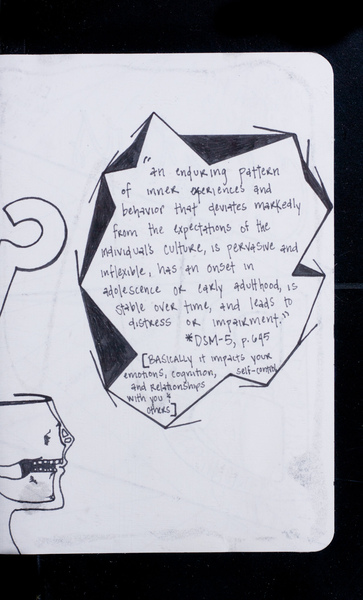 "an enduring pattern
of inner experiences and
behavior that deviates markedly
from the expectations of the
individual's culture, is pervasive and
inflexible, has an onset in
adolescence or early adulthood, is
stable over time, and leads to
distress or impairment."
*DSM-5, p. 645
[BASICALLY it impacts your
emotions, cognition, self-control,
and relationships
with you &
others]